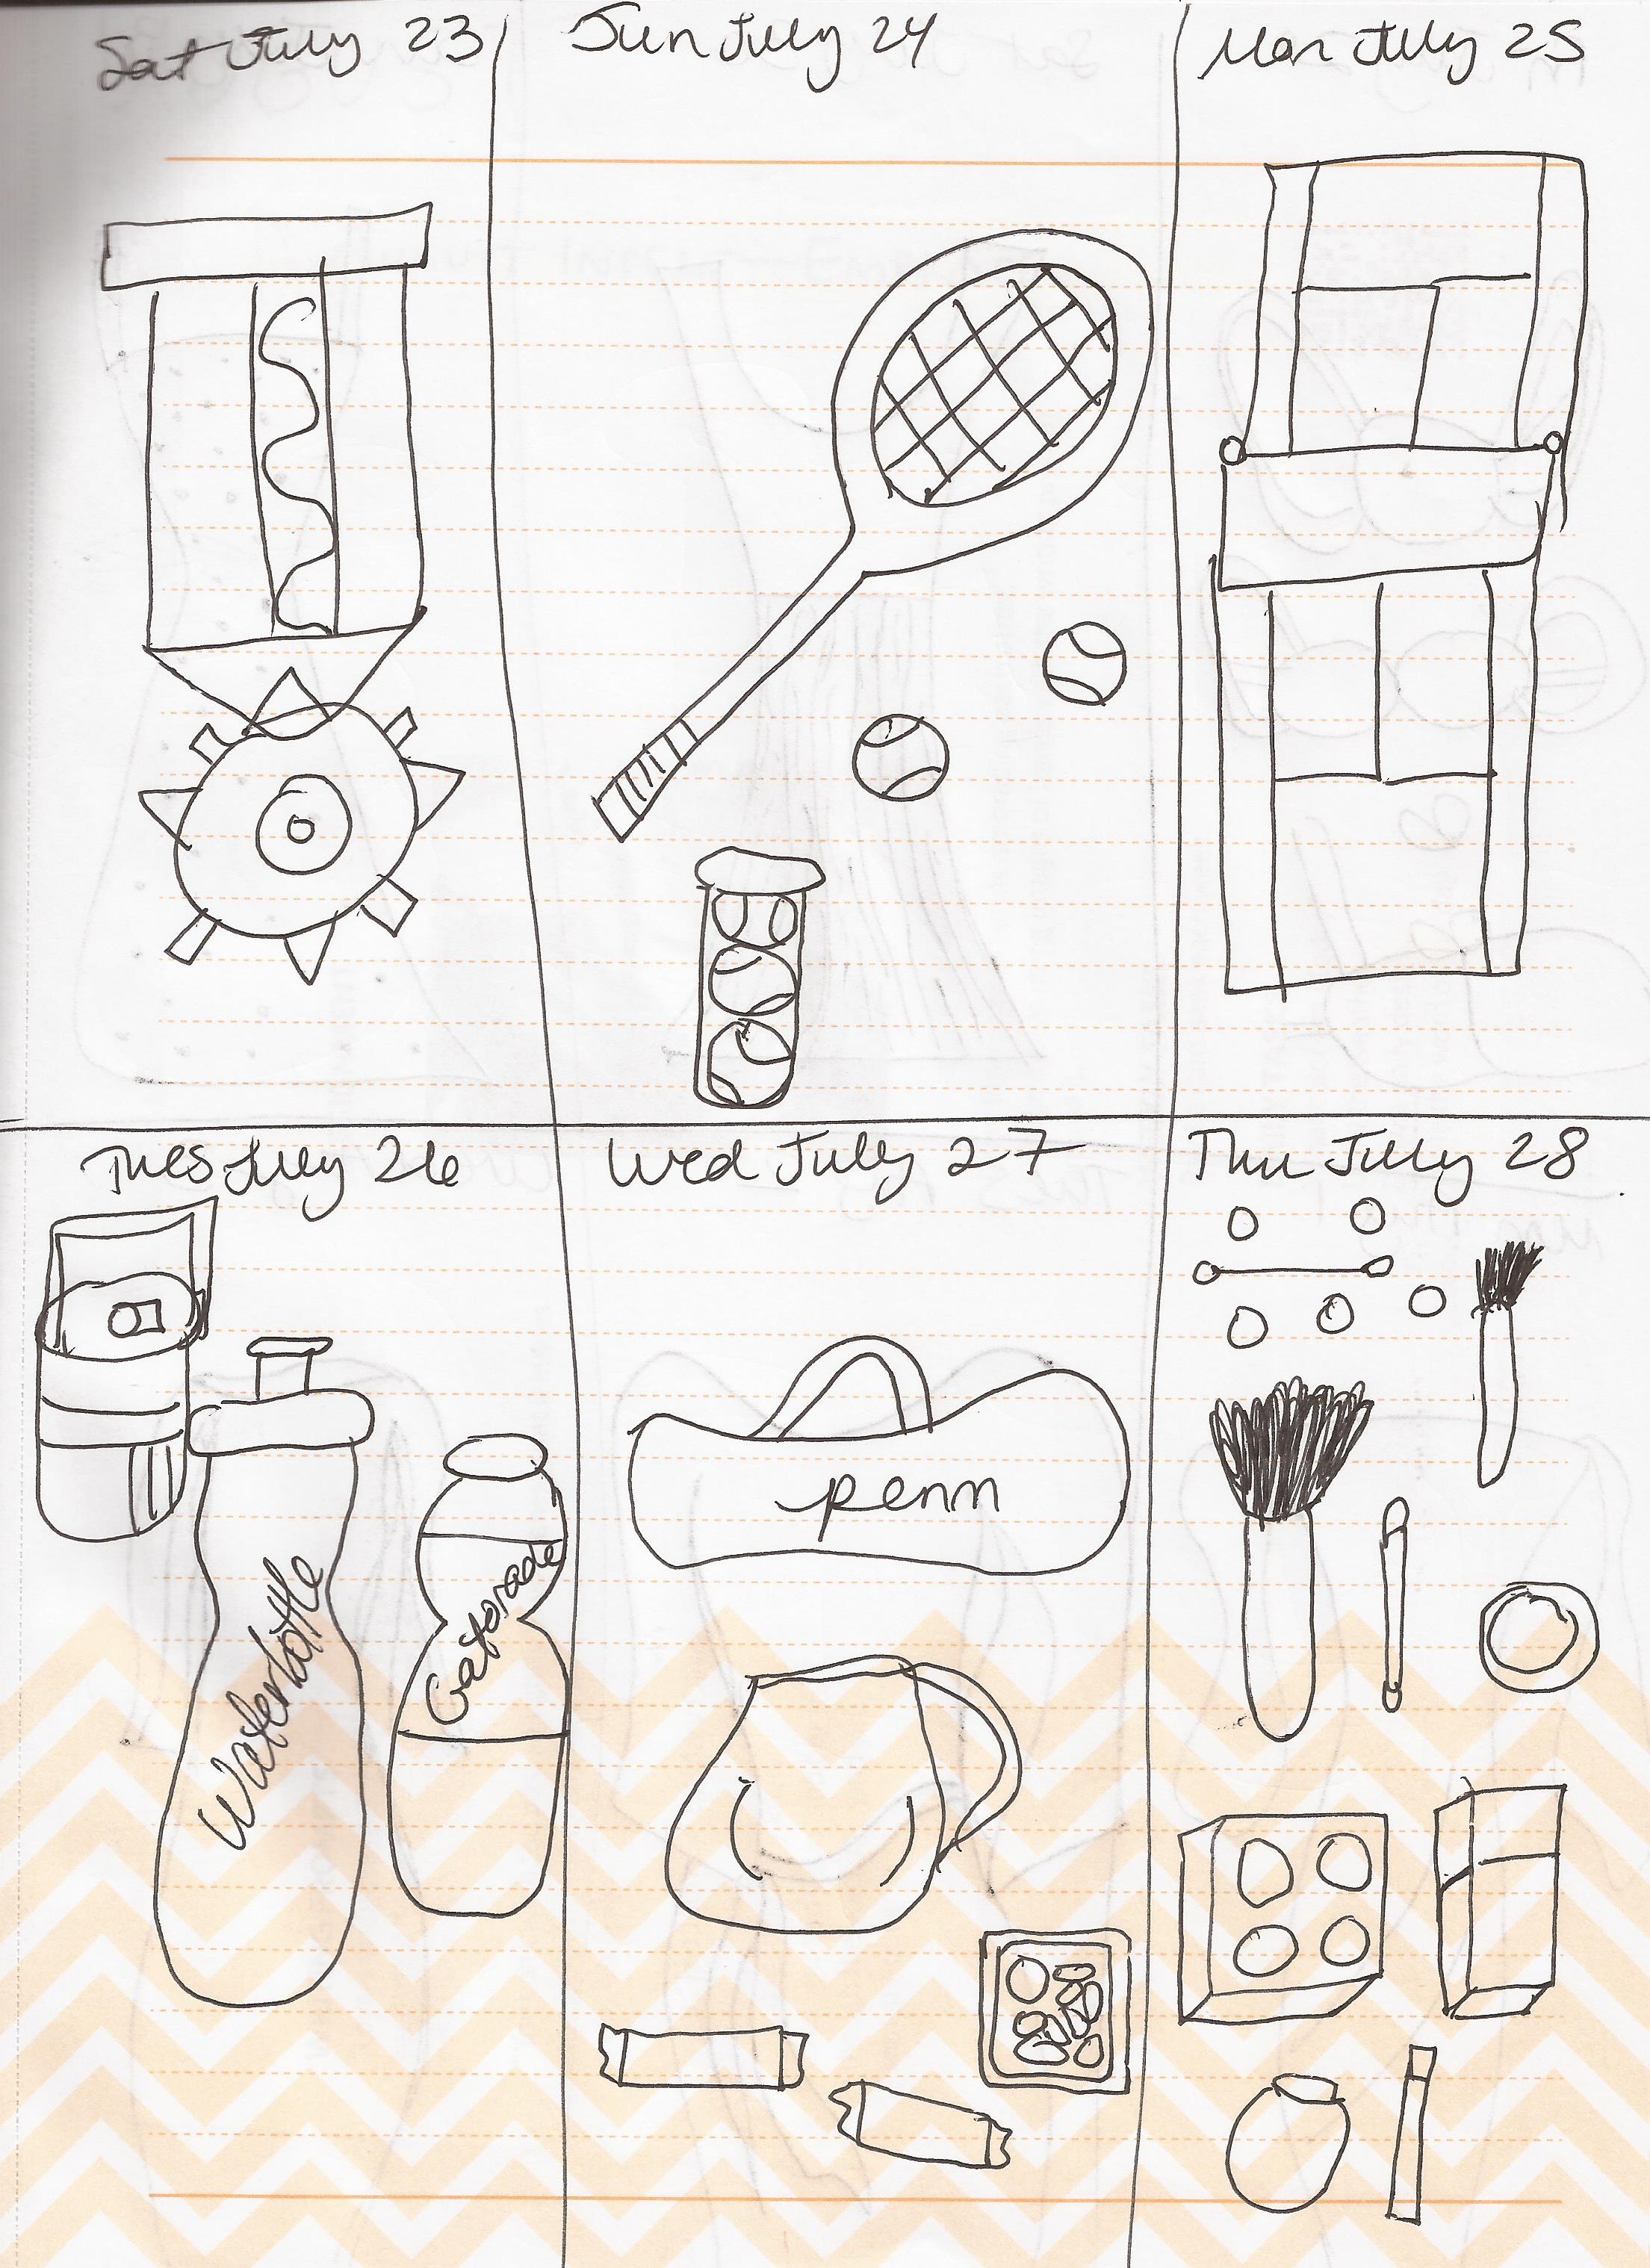 Sat July 23
Sun July 24
Mon July 25
Tues July 26
Wed July 27
Thu July 28
Waterbottle
Gatorade
penn